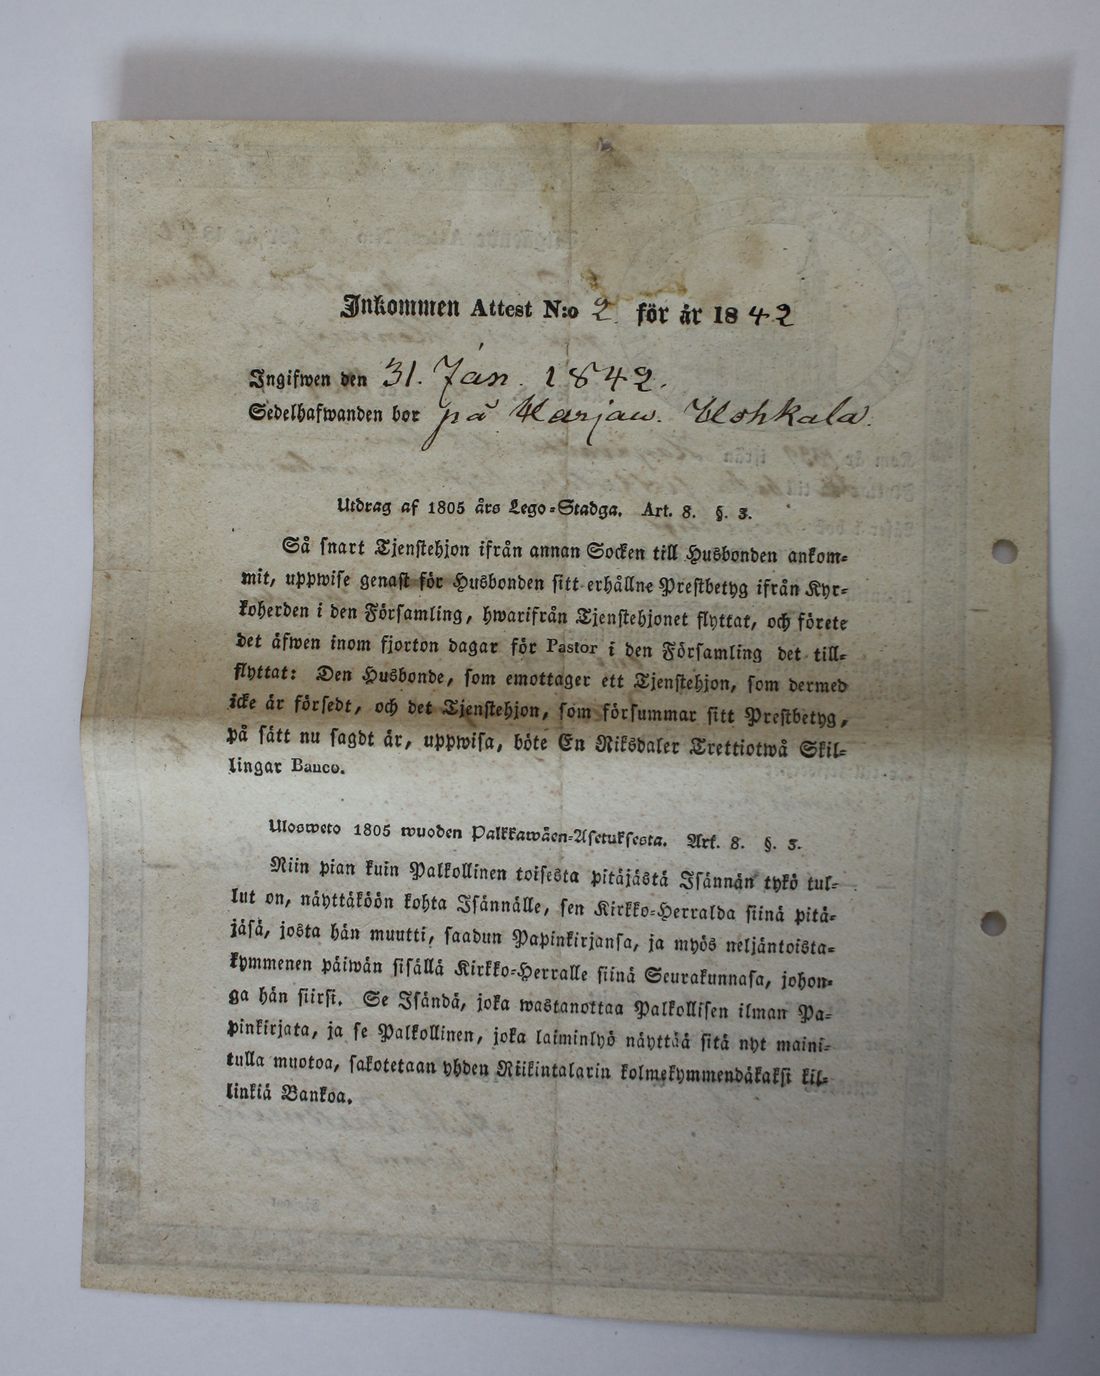 Inkommen Attest N:o 2 för år 1842
Ingifwen den 31. Jan. 1842.
Sedelhafwanden bor på Harjaw. Uohkala.
Utdrag af 1805 års Lego-Stadga. Art. 8. §. 3.
Så snart Tjenstehjon ifrån annan Socken till Husbonden ankom-
mit, uppwise genast för Husbonden sitt erhållne Prestbetyg ifrån Kyr-
koherden i den Församling, hwarifrån Tjenstehjonet flyttat, och förete
det äfwen inom fjorton dagar för Pastor i den Församling det till-
flyttat: Den Husbonde, som emottager ett Tjenstehjon, som dermed
icke är försedt, och det Tjenstehjon, som försummar sitt Prestbetyg,
på sätt nu sagdt är, uppwisa, böte En Riksdaler Trettiotwå Skil-
lingar Banco.
Ulosweto 1805 wuoden Palkkawäen-Asetuksesta. Art. 8. §. 3.
Niin pian kuin Palkollinen toisesta pitäjästä Isännän tykö tul-
lut on, näyttäköön kohta Isännälle, sen Kirkko-Herralda siinä pitä-
jäsä, josta hän muutti, saadun Papinkirjansa, ja myös neljäntoista-
kymmenen päiwän sisällä Kirkko-Herralle siinä Seurakunnasa, johon-
ga hän siirsi. Se Isändä, joka wastanottaa Palkollisen ilman Pa-
pinkirjata, ja se Palkollinen, joka laiminlyö näyttää sitä nyt maini-
tulla muotoa, sakotetaan yhden Riikintalarin kolmekymmendäkaksi kil-
linkiä Bankoa.